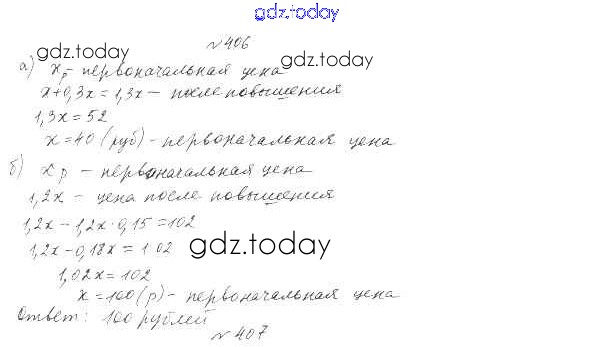 gdz.today
№406
gdz.today
gdz.today
а) x р - первоначальная цена
x+0,3x = 1,3x - после повышения
1,3x = 52
x = 40 (руб) - первоначальная цена
б) x р - первоначальная цена
1,2x - цена после повышения
1,2x - 1,2x · 0,15 = 102
1,2x - 0,18x = 102
gdz.today
1,02x = 102
x = 100 (р) - первоначальная цена
Ответ: 100 рублей
№407